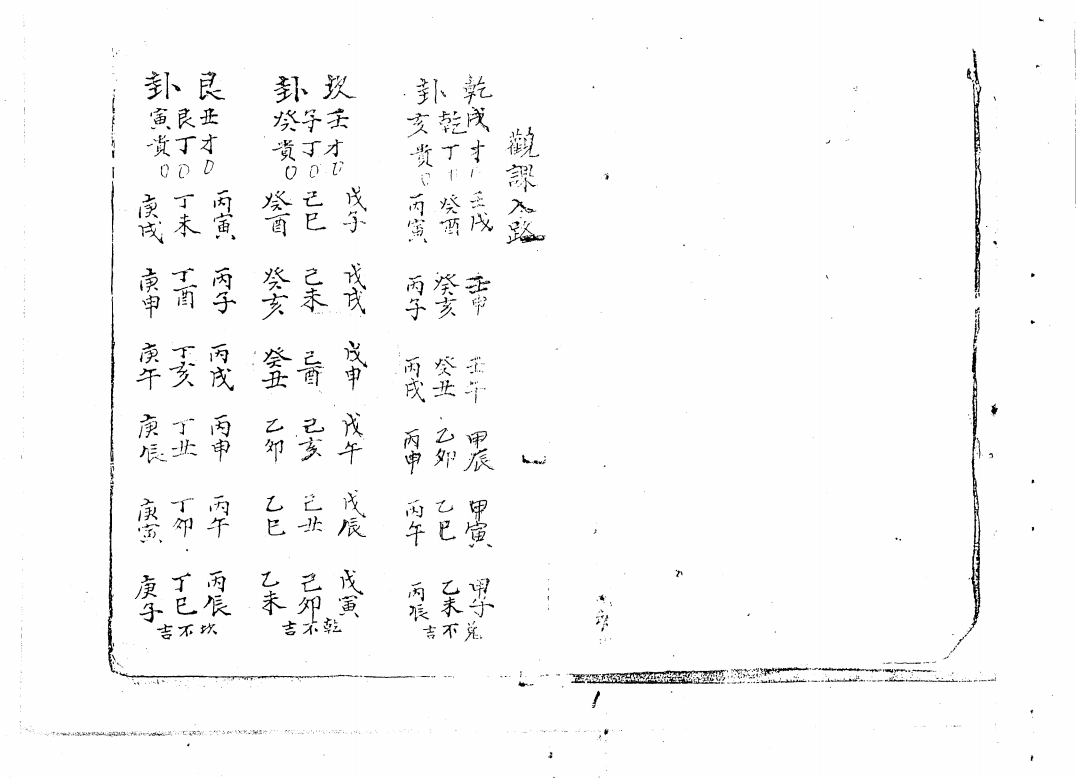 觀課入路
乾戌才0 壬戌 壬申 壬午 甲辰 甲寅 甲子 兌
乾丁0 癸酉 癸亥 癸丑 乙卯 乙巳 乙未 不
卦亥貴0 丙寅 丙子 丙戌 丙申 丙午 丙辰 吉
坎壬才0 戊子 戊戌 戊申 戊午 戊辰 戊寅 乾
子丁0 己巳 己未 己酉 己亥 己丑 己卯 不
卦癸貴0 癸酉 癸亥 癸丑 乙卯 乙巳 乙未 吉
艮丑才0 丙寅 丙子 丙戌 丙申 丙午 丙辰 坎
艮丁0 丁未 丁酉 丁亥 丁丑 丁卯 丁巳 不
卦寅貴0 庚戌 庚申 庚午 庚辰 庚寅 庚子 吉
1